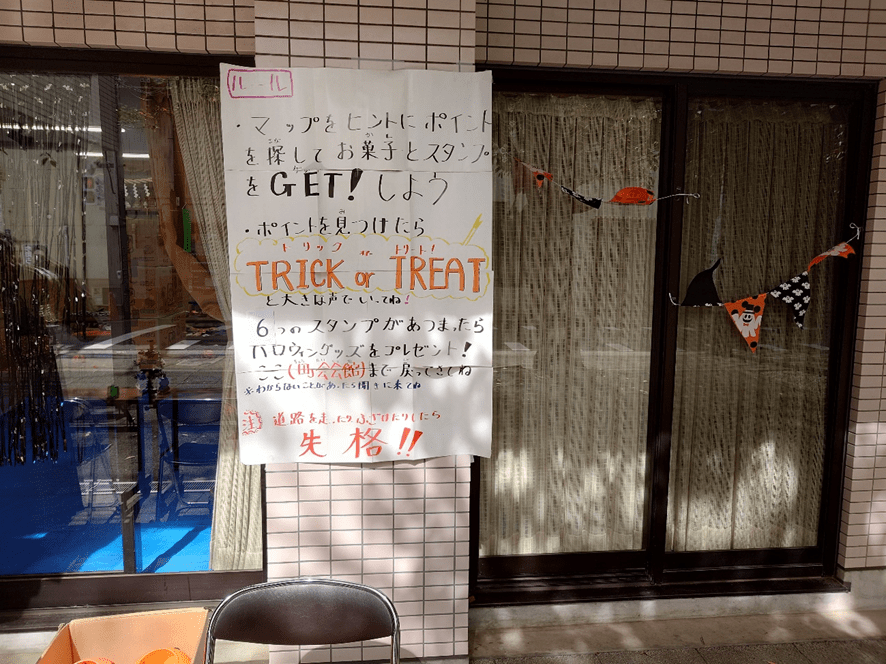 ルール
・マップをヒントにポイント
を探してお菓子とスタンプ
をGET!しよう
・ポイントを見つけたら
トリック or トリート!
TRICK or TREAT
と大きな声でいってね!
6つのスタンプがあつまったら
ハロウィングッズをプレゼント!
ここ(町会会館)まで戻ってきてね
※わからないことがあったら聞きに来てね
道路を走ったりふざけたりしたら
失格!!